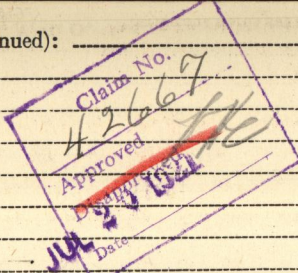 nued):
Claim No.
42667
Approved
Disapproved
JUL 27 1921
Date